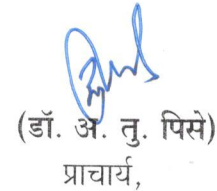 (डॉ. अ. तु. पिसे)
प्राचार्य,